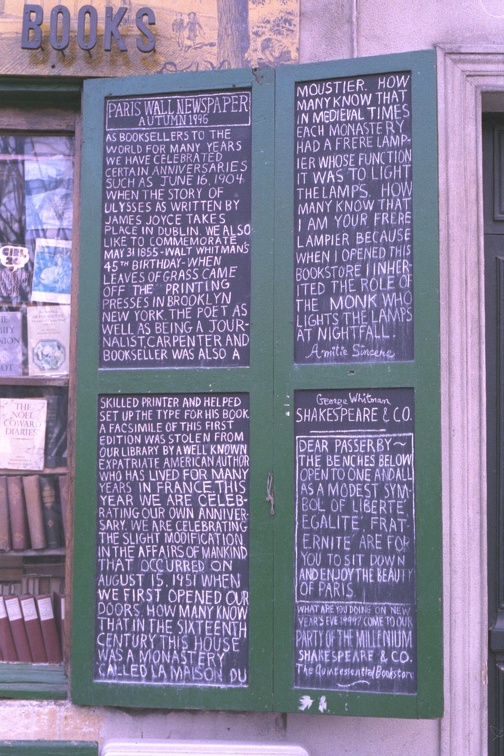 BOOKS
PARIS WALL NEWSPAPER
AUTUMN 1996
AS BOOKSELLERS TO THE
WORLD FOR MANY YEARS
WE HAVE CELEBRATED
CERTAIN ANNIVERSARIES
SUCH AS JUNE 16, 1904
WHEN THE STORY OF
ULYSSES AS WRITTEN BY
JAMES JOYCE TAKES
PLACE IN DUBLIN. WE ALSO
LIKE TO COMMEMORATE
MAY 31 1855 - WALT WHITMAN'S
45TH BIRTHDAY - WHEN
LEAVES OF GRASS CAME
OFF THE PRINTING
PRESSES IN BROOKLYN
NEW YORK. THE POET AS
WELL AS BEING A JOUR-
NALIST, CARPENTER AND
BOOKSELLER WAS ALSO A
SKILLED PRINTER AND HELPED
SET UP THE TYPE FOR HIS BOOK
A FACSIMILE OF THIS FIRST
EDITION WAS STOLEN FROM
OUR LIBRARY BY A WELL KNOWN
EXPATRIATE AMERICAN AUTHOR
WHO HAS LIVED FOR MANY
YEARS IN FRANCE. THIS
YEAR WE ARE CELEB-
RATING OUR OWN ANNIVER-
SARY. WE ARE CELEBRATING
THE SLIGHT MODIFICATION
IN THE AFFAIRS OF MANKIND
THAT OCCURRED ON
AUGUST 15, 1951 WHEN
WE FIRST OPENED OUR
DOORS. HOW MANY KNOW
THAT IN THE SIXTEENTH
CENTURY THIS HOUSE
WAS A MONASTERY
CALLED LA MAISON DU
MOUSTIER. HOW
MANY KNOW THAT
IN MEDIEVAL TIMES
EACH MONASTERY
HAD A FRERE LAMP-
IER WHOSE FUNCTION
IT WAS TO LIGHT
THE LAMPS. HOW
MANY KNOW THAT
I AM YOUR FRERE
LAMPIER BECAUSE
WHEN I OPENED THIS
BOOKSTORE I INHER-
ITED THE ROLE OF
THE MONK WHO
LIGHTS THE LAMPS
AT NIGHTFALL.
Amitie Sincere
George Whitman
SHAKESPEARE & CO.
DEAR PASSERBY~
THE BENCHES BELOW
OPEN TO ONE AND ALL
AS A MODEST SYM-
BOL OF LIBERTE,
EGALITE, FRAT-
ERNITE ARE FOR
YOU TO SIT DOWN
AND ENJOY THE BEAUTY
OF PARIS
WHAT ARE YOU DOING ON NEW
YEAR'S EVE 1999? COME TO OUR
PARTY OF THE MILLENIUM
SHAKESPEARE & CO.
The Quintessential Bookstore
THE
NOEL
COWARD
DIARIES